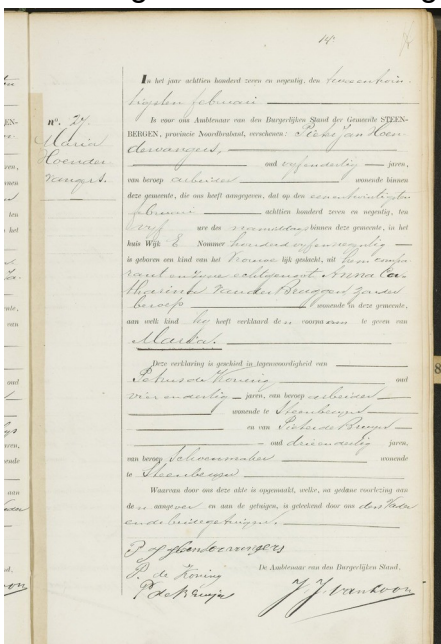 14
nº. 27.
Maria
Hoender
vangers.
In het jaar achttien honderd zeven en negentig, den twee en twin
tigsten februari
Is voor ons Ambtenaar van den Burgerlijken Stand der Gemeente STEEN-
BERGEN, provincie Noordbrabant, verschenen: Pieter Jan Hoen
dervangers,
oud vijfendertig jaren,
van beroep arbeider wonende binnen
deze gemeente, die ons heeft aangegeven, dat op den een en twintigsten
februari achttien honderd zeven en negentig, ten
vijf ure des voormiddags binnen deze gemeente, in het
huis Wijk E Nommer honderd
is geboren een kind van het Vrouwe lijk geslacht, uit hem compa
rant en zijne echtgenoot Anna Ca
tharina van der Bruggen zonder
beroep wonende in deze gemeente,
aan welk kind hij heeft verklaard den voornaam te geven van
Maria.
Deze verklaring is geschied in tegenwoordigheid van
Petrus de Koning oud
vier en dertig jaren, van beroep arbeider
wonende te Steenbergen
en van Pieter de
oud drie en dertig jaren,
van beroep Schoenmaker wonende
te Steenbergen
Waarvan door ons deze akte is opgemaakt, welke, na gedane voorlezing aan
den aangever en aan de getuigen, is geteekend door ons den Vader
en de beide getuigen.
P J Hoendervangers
P. de Koning
De Ambtenaar van den Burgerlijken Stand,
P de
J. J. van Loon